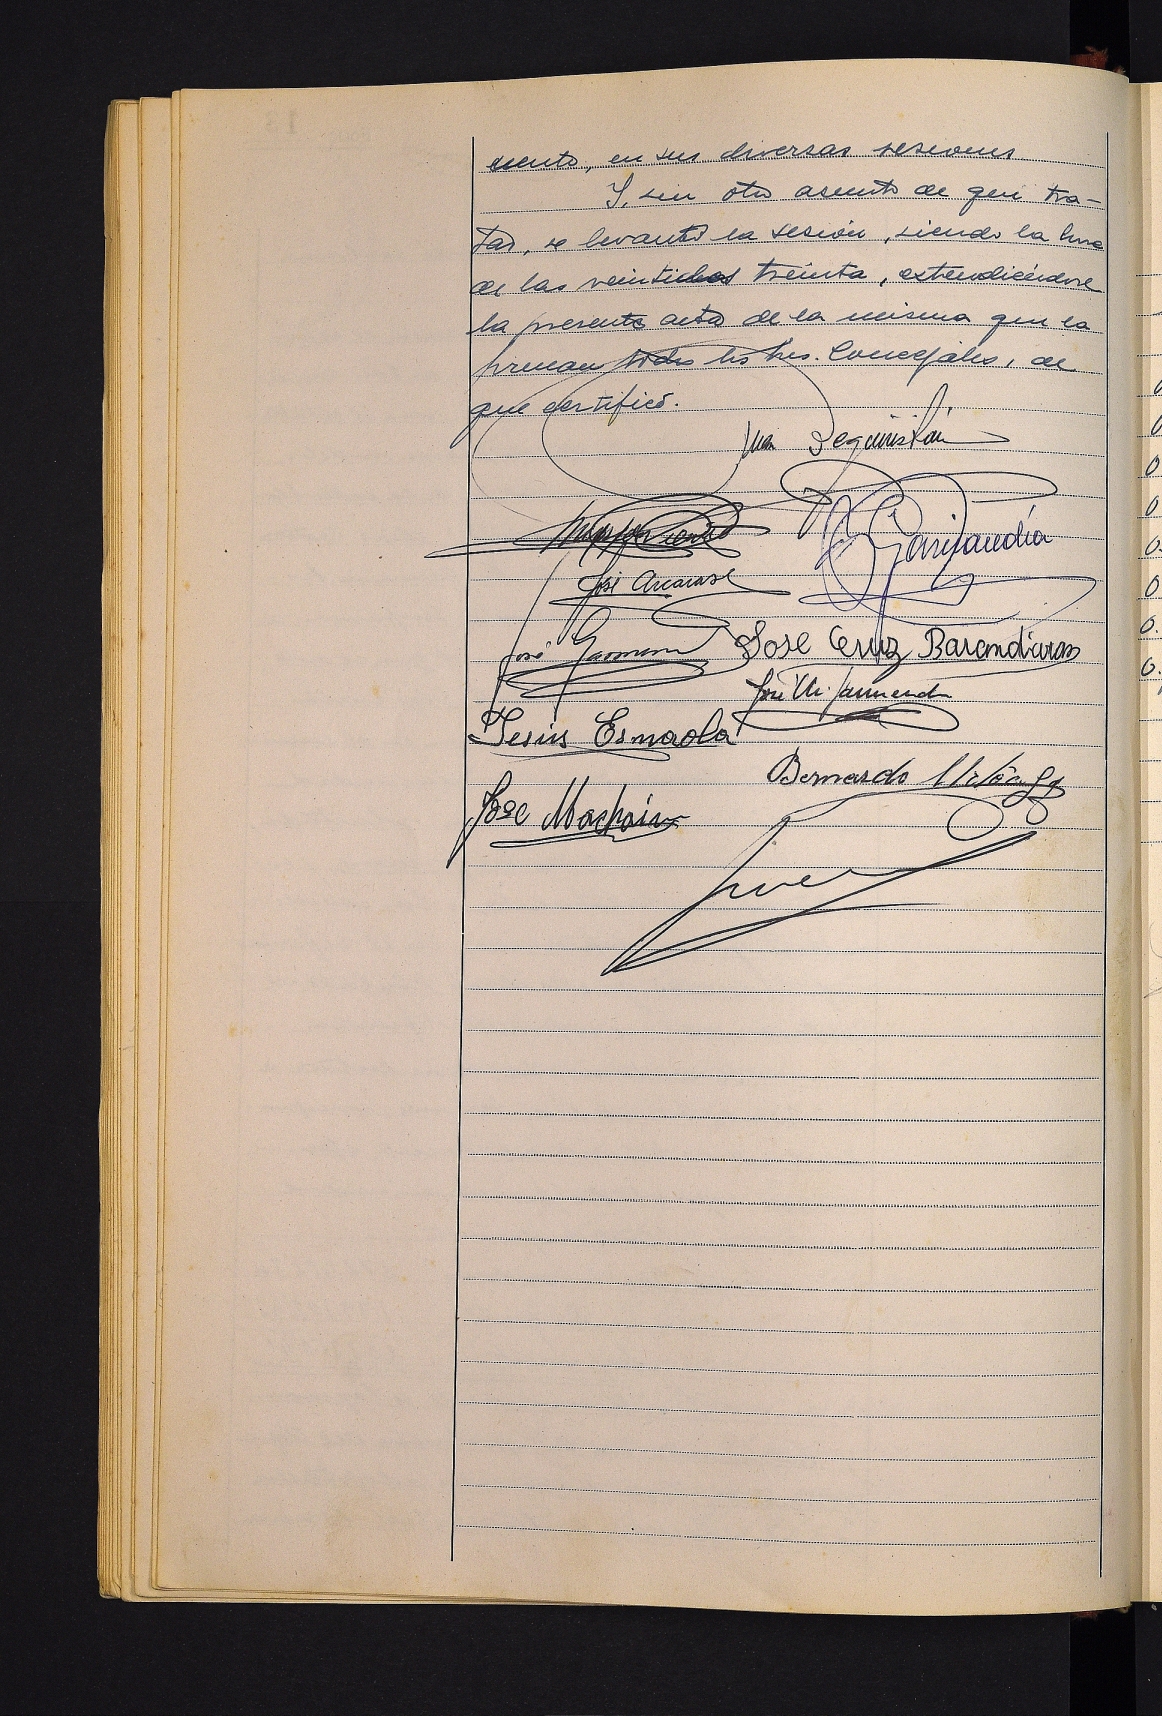 miento, en sus diversas sesiones
Y, sin otro asunto de que tra-
tar, se levantó la sesión, siendo la hora
de las veintidos treinta, extendiéndose
la presente acta de la misma que la
firman todos los Sres. Concejales, de
que certifico.
Juan Peguiristain
Garijandia
José
José Cruz Barandiaran
José
José M.
Jesús Esnaola
Bernardo
José Machain